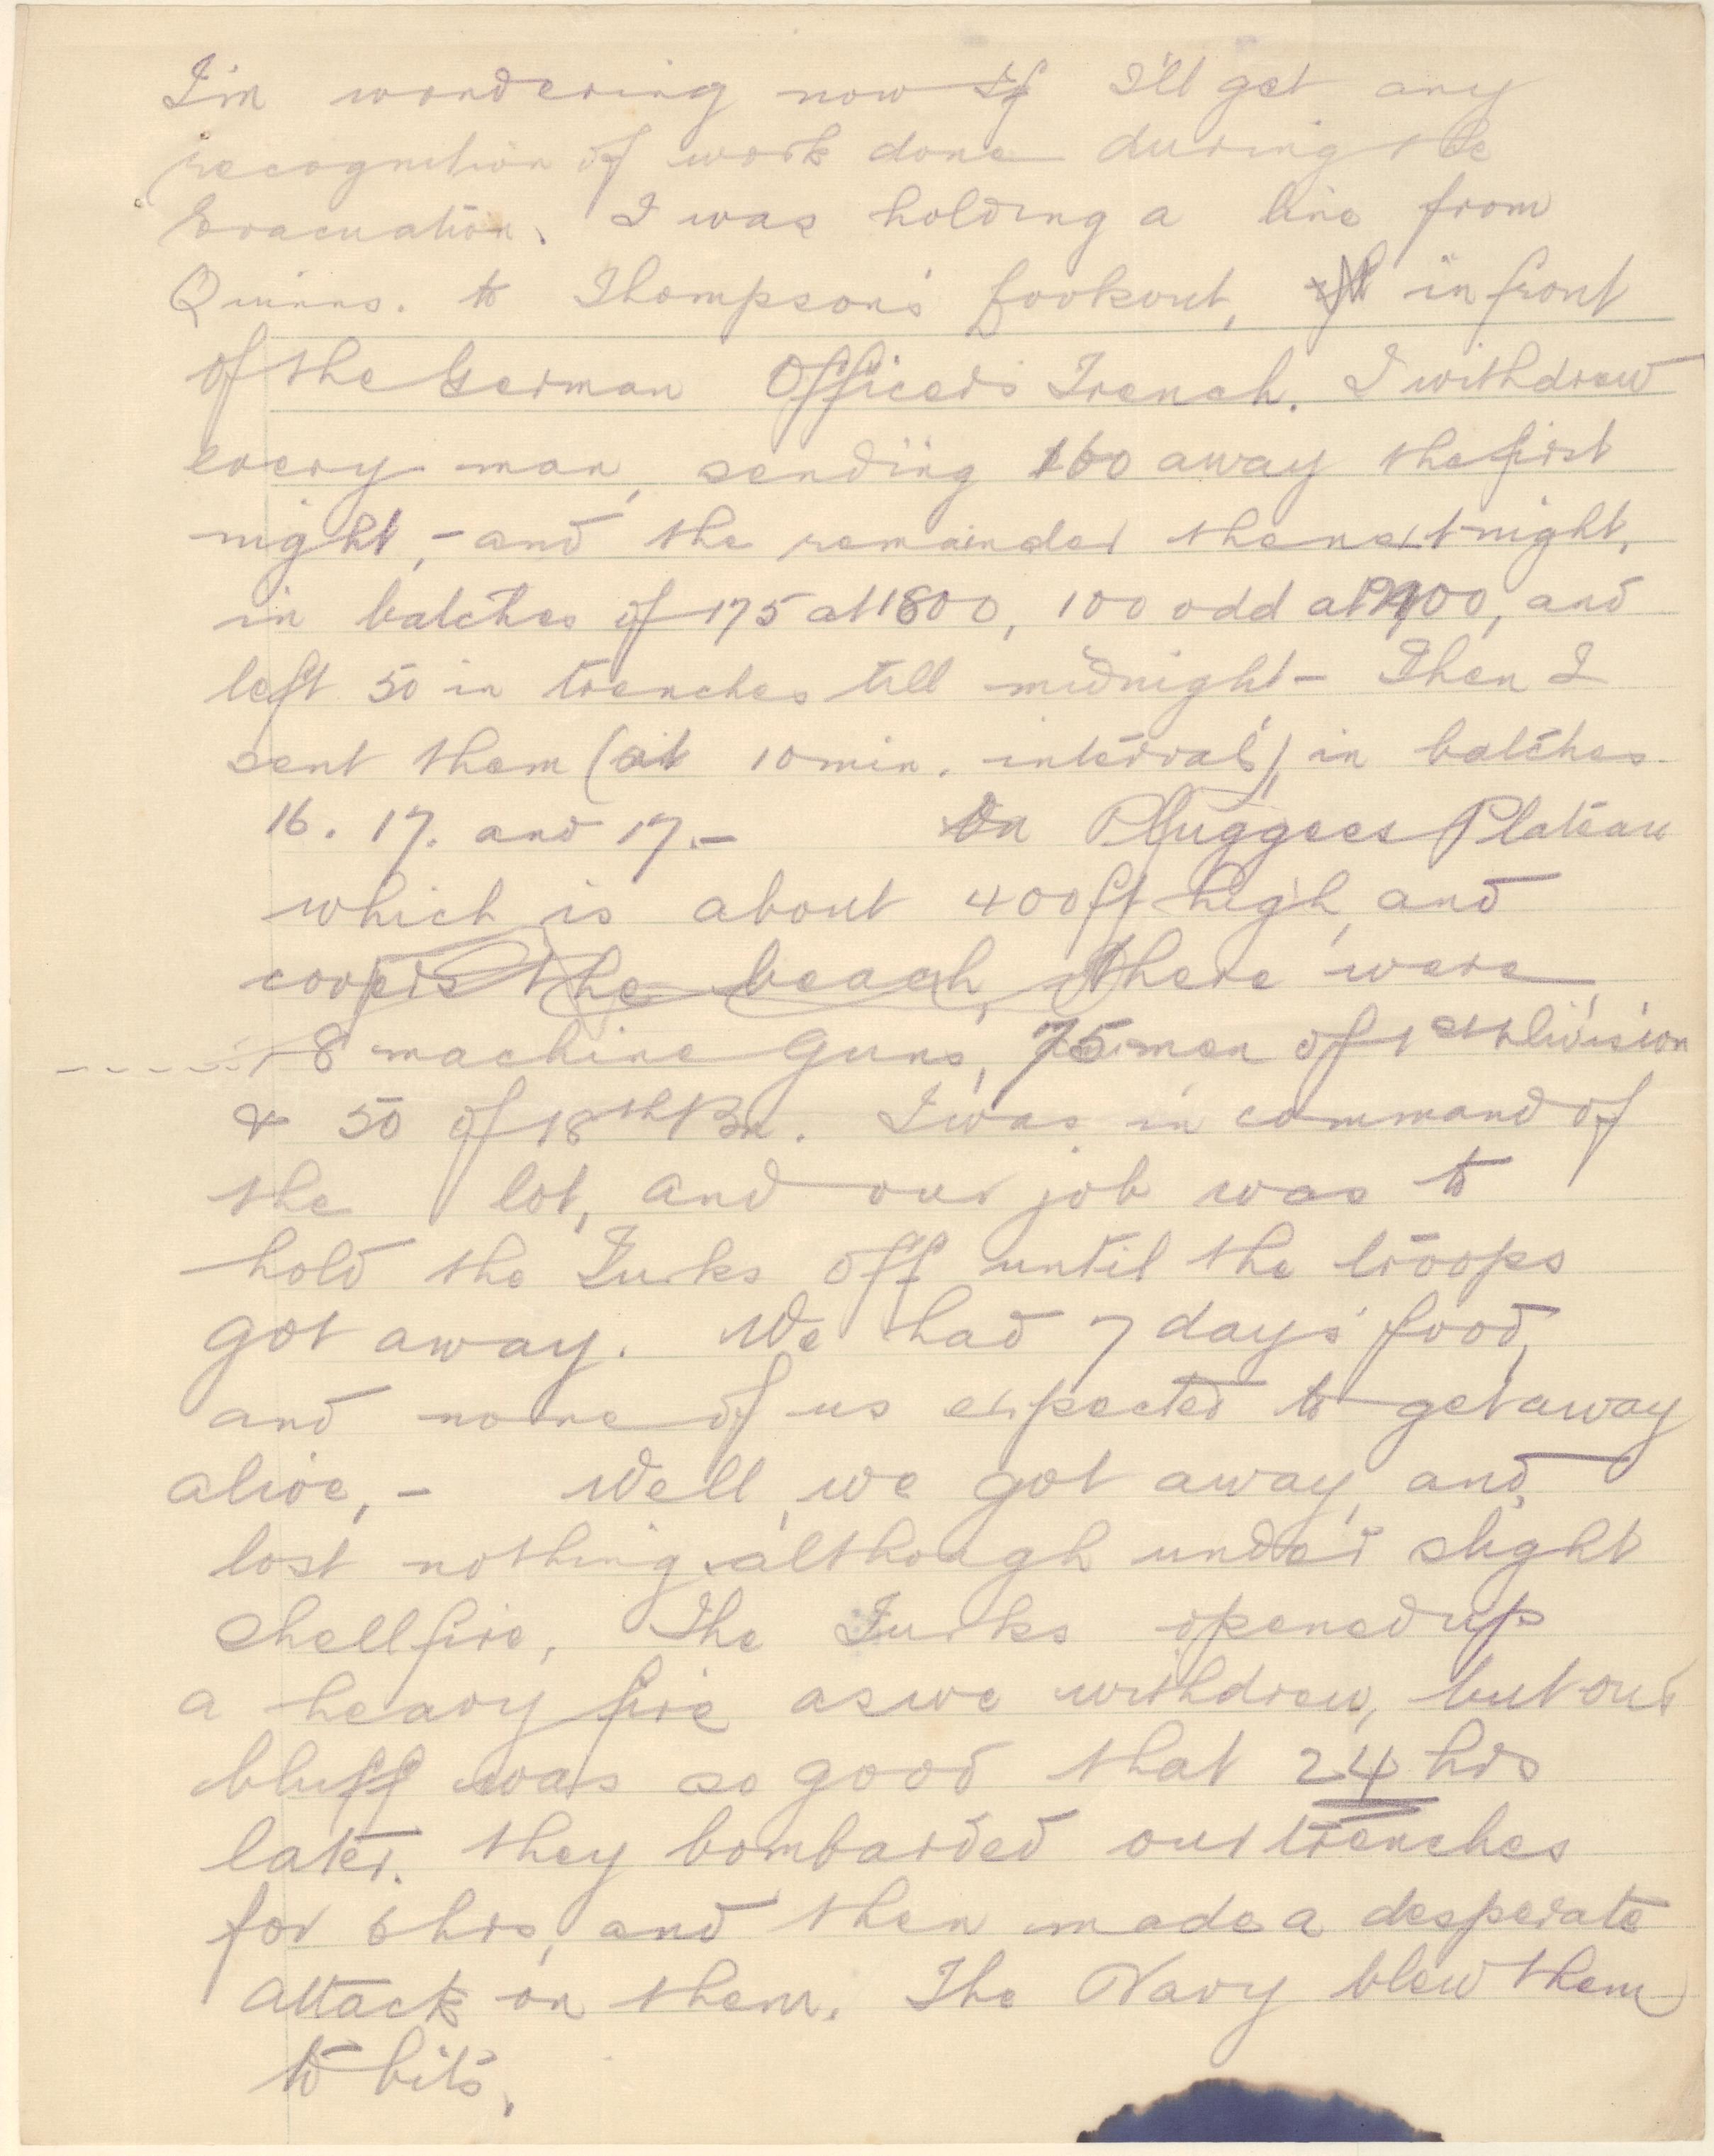 I'm wondering now if I'll get any
recognition of work done during the
Evacuation. I was holding a line from
Quinns. to Thompson's Lookout, in front
of the German Officers Trench. I withdrew
every man, sending 160 away the first
night, - and the remainder the next night,
in batches of 175 at 1800, 100 odd at 2100, and
left 50 in trenches till midnight - Then I
sent them (at 10 min. intervals) in batches
16. 17. and 17. - On Pluggees Plateau
which is about 400 ft high, and
covers the beach, there were
18 machine guns, 75 men of 1st Division
& 50 of 18th Bn. I was in command of
the lot, and our job was to
hold the Turks off until the troops
got away. We had 7 days' food,
and none of us expected to get away
alive, - Well, we got away, and
lost nothing although under slight
shellfire, The Turks opened up
a heavy fire as we withdrew, but our
bluff was so good that 24 hrs
later. they bombarded our trenches
for 6 hrs, and then made a desperate
attack on them. The Navy blew them
to bits.